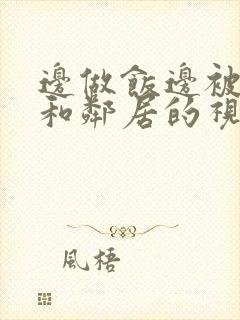 邊做飯邊被
和鄰居的視
風梧